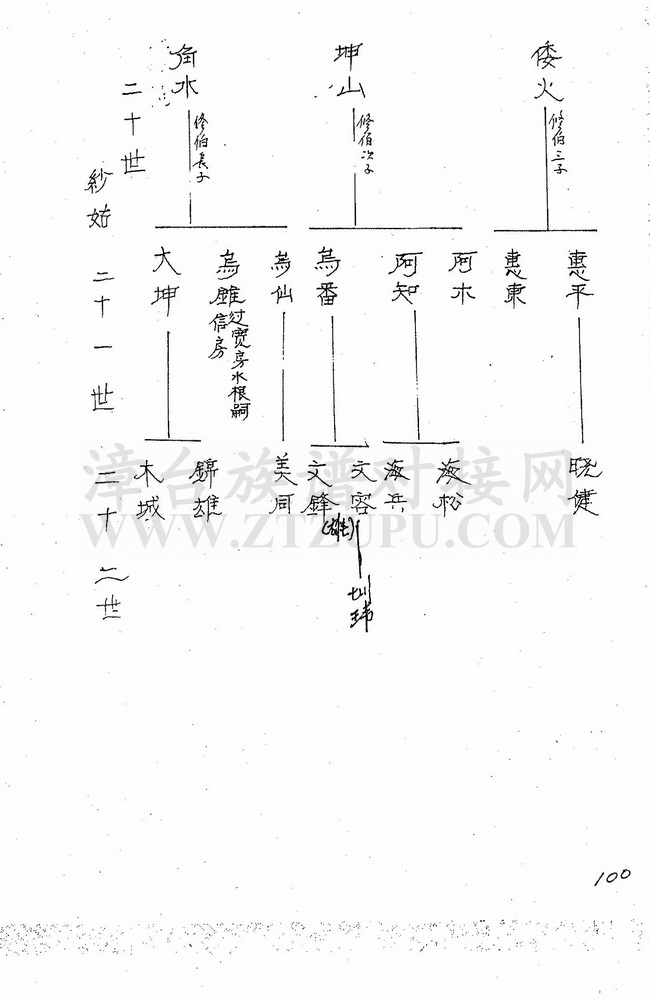 二十世
角水
修伯長子
坤山
修伯次子
倭火
修伯三子
紗始
二十一世
大坤
烏雖
过寬房水根嗣
信房
烏仙
烏番
阿知
阿木
惠東
惠平
二十二世
木城
錦雄
美同
文鋒
文容
海兵
海松
晓健
圳瑋
漳台族谱对接网
WWW.ZTZUPU.COM
100